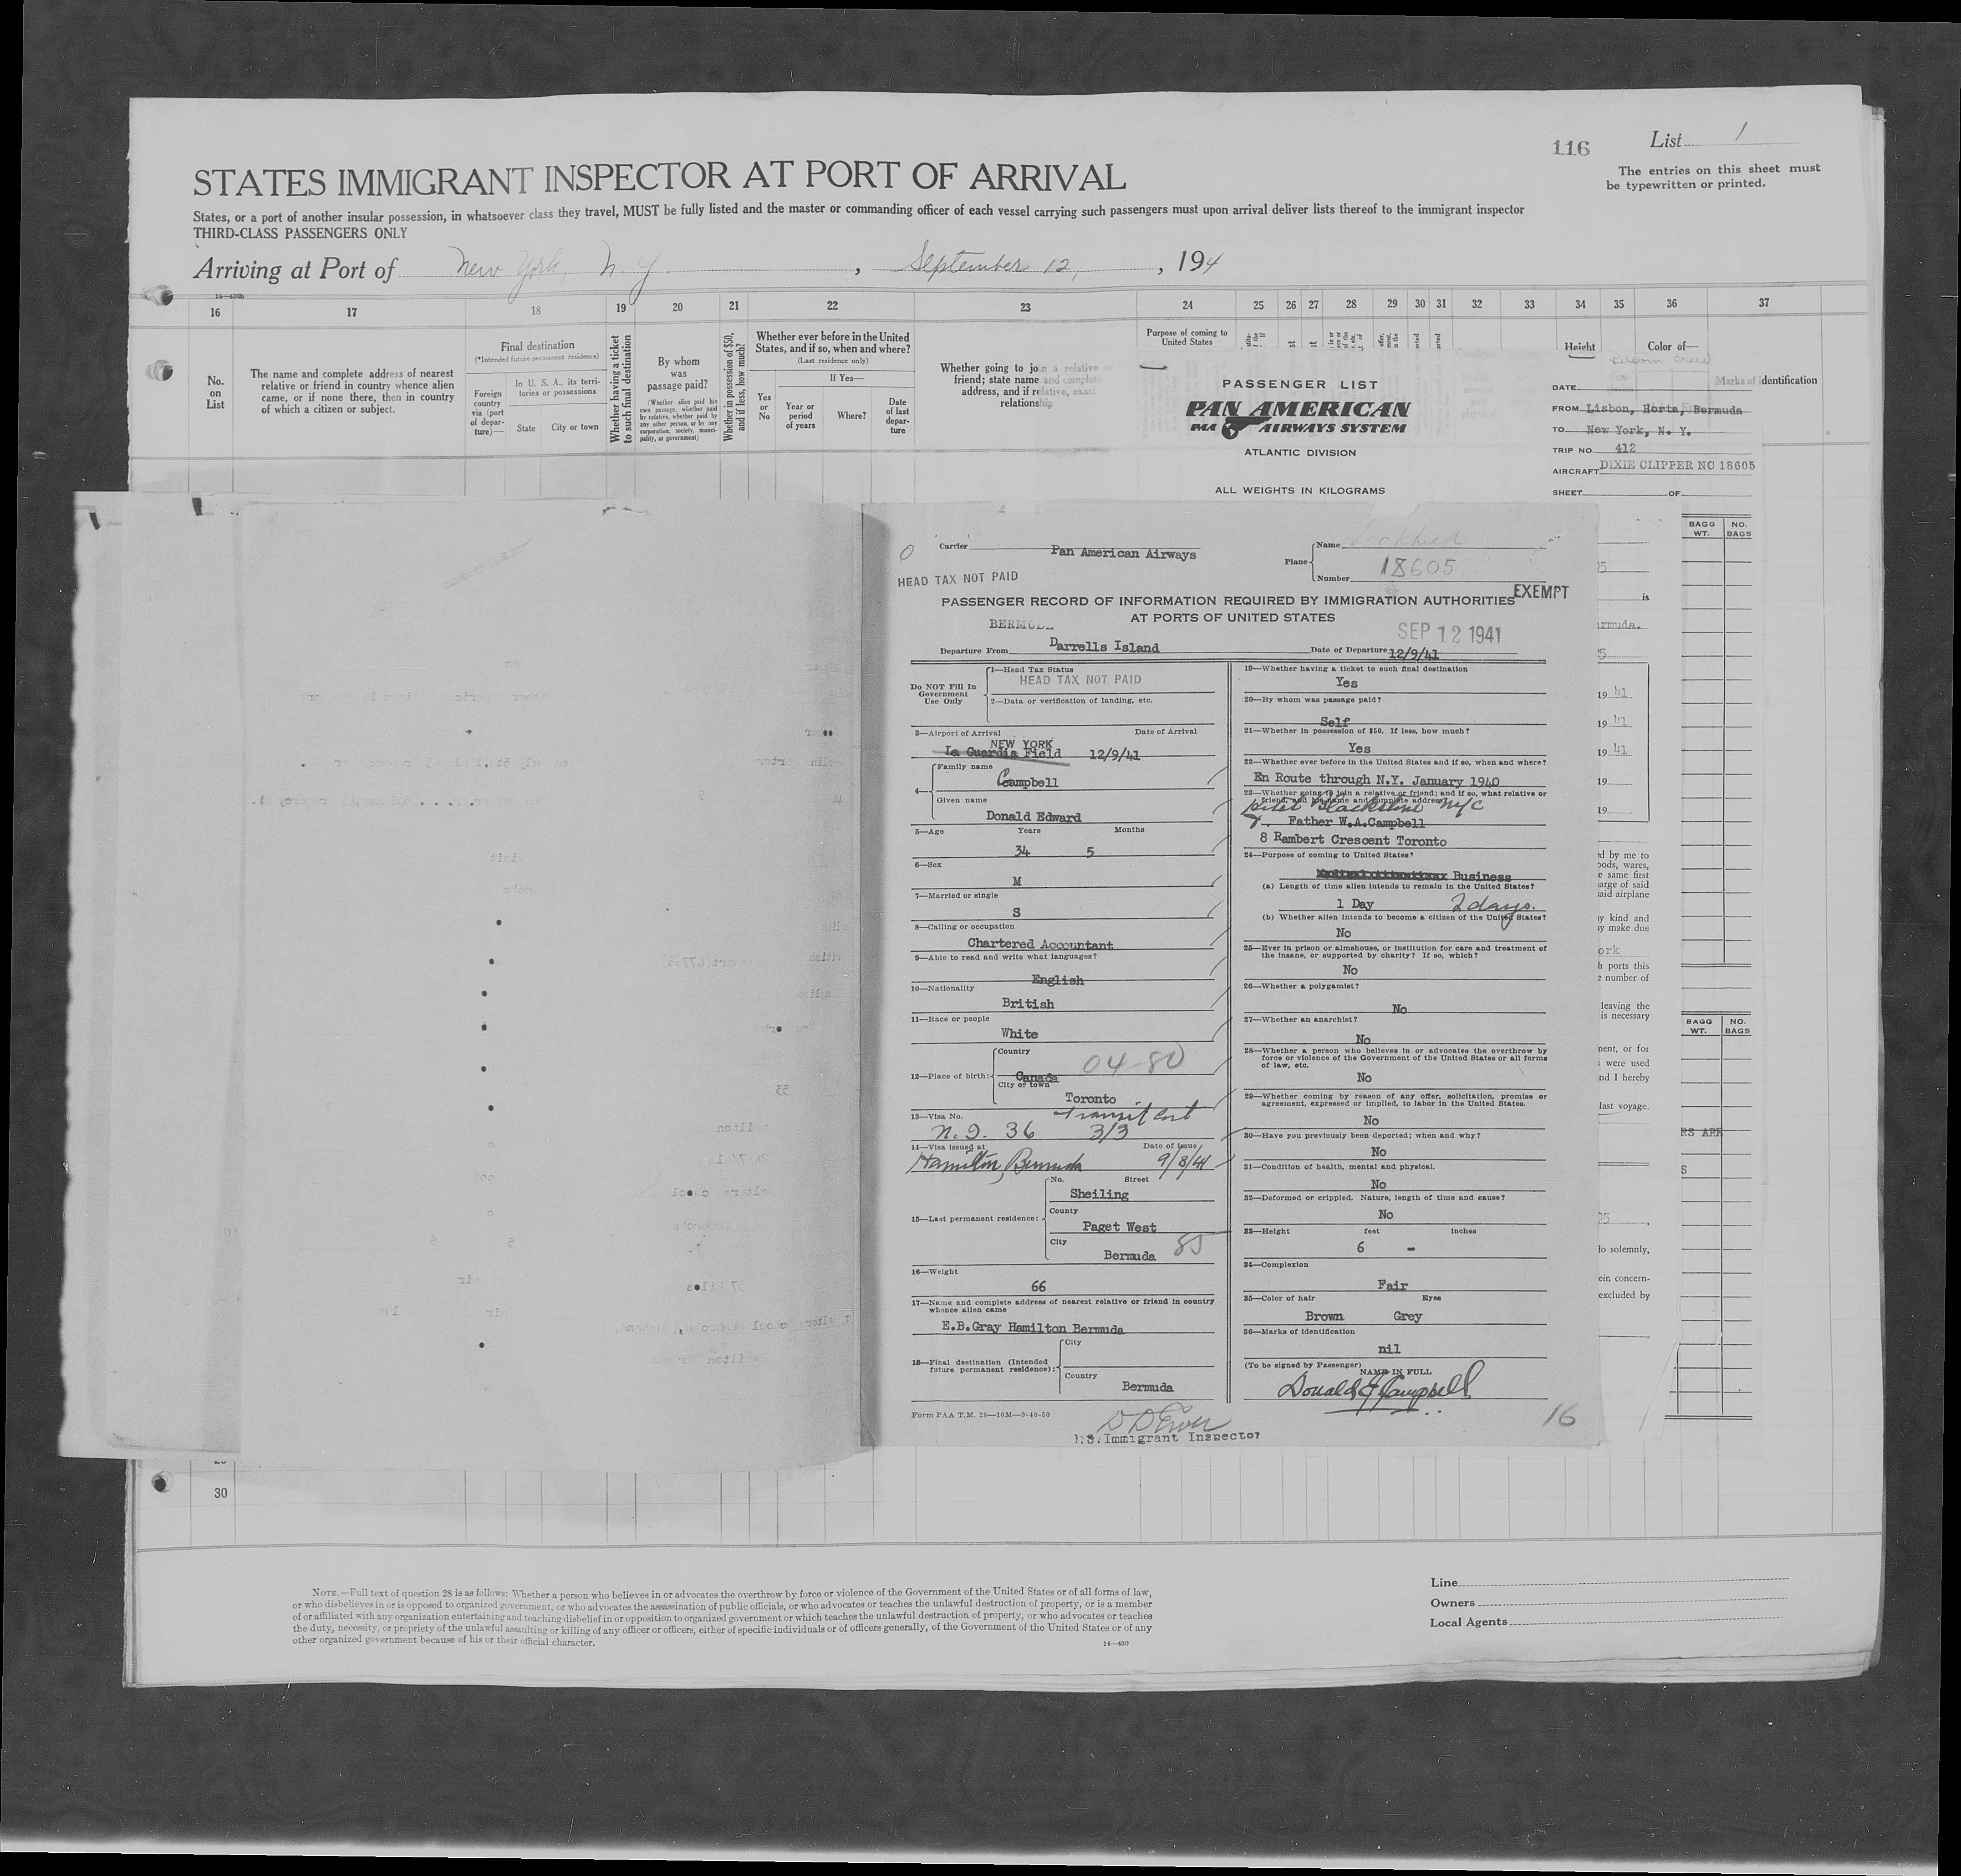 116
List 1
The entries on this sheet must
be typewritten or printed.
STATES IMMIGRANT INSPECTOR AT PORT OF ARRIVAL
States, or a port of another insular possession, in whatsoever class they travel, MUST be fully listed and the master or commanding officer of each vessel carrying such passengers must upon arrival deliver lists thereof to the immigrant inspector
THIRD-CLASS PASSENGERS ONLY
Arriving at Port of New York, N. Y. , September 12, , 194
14—430b
16 17 18 19 20 21 22 23 24 25 26 27 28 29 30 31 32 33 34 35 36 37
No.
on
List
The name and complete address of nearest
relative or friend in country whence alien
came, or if none there, then in country
of which a citizen or subject.
Final destination
(*Intended future permanent residence)
Foreign
country
via (port
of depar-
ture)—
In U. S. A., its terri-
tories or possessions
State City or town
Whether having a ticket
to such final destination
By whom
was
passage paid?
(Whether alien paid his
own passage, whether paid
by relative, whether paid by
any other person, or by any
corporation, society, munici-
pality, or government)
Whether in possession of $50,
and if less, how much?
Whether ever before in the United
States, and if so, when and where?
(Last residence only)
If Yes—
Yes
or
No
Year or
period
of years
Where?
Date
of last
depar-
ture
Whether going to join a relative or
friend; state name and complete
address, and if relative, exact
relationship
Purpose of coming to
United States
Height
Color of—
Marks of identification
PASSENGER LIST
PAN AMERICAN
PAA AIRWAYS SYSTEM
ATLANTIC DIVISION
ALL WEIGHTS IN KILOGRAMS
DATE
FROM Lisbon, Horta, Bermuda
TO New York, N. Y.
TRIP NO. 412
AIRCRAFT DIXIE CLIPPER NC 18605
SHEET OF
BAGG
WT.
NO.
BAGS
Carrier Pan American Airways
Plane
Name
Number 18605
HEAD TAX NOT PAID
EXEMPT
PASSENGER RECORD OF INFORMATION REQUIRED BY IMMIGRATION AUTHORITIES
AT PORTS OF UNITED STATES
BERMUDA
SEP 12 1941
Departure From Darrells Island
Date of Departure 12/9/41
Do NOT Fill In
Government
Use Only
1—Head Tax Status
HEAD TAX NOT PAID
2—Data or verification of landing, etc.
3—Airport of Arrival Date of Arrival
NEW YORK
La Guardia Field 12/9/41
4— Family name
Campbell
Given name
Donald Edward
5—Age Years Months
34 5
6—Sex
M
7—Married or single
S
8—Calling or occupation
Chartered Accountant
9—Able to read and write what languages?
English
10—Nationality
British
11—Race or people
White
12—Place of birth:
Country
Canada
04-80
City or town
Toronto
13—Visa No.
Transit Cert
N.I. 36 3/3
14—Visa issued at Date of issue
Hamilton, Bermuda 9/8/41
15—Last permanent residence:
No. Street
Sheiling
County
Paget West
City
Bermuda 85
16—Weight
66
17—Name and complete address of nearest relative or friend in country
whence alien came
E.B.Gray Hamilton Bermuda
18—Final destination (Intended
future permanent residence):
City
Country
Bermuda
Form PAA T.M. 28—10M—9-40-50
U.S. Immigrant Inspector
19—Whether having a ticket to such final destination
Yes
20—By whom was passage paid?
Self
21—Whether in possession of $50. If less, how much?
Yes
22—Whether ever before in the United States and if so, when and where?
En Route through N.Y. January 1940
23—Whether going to join a relative or friend; and if so, what relative or
friend, and his name and complete address
Hotel Blackstone NYC
Father W.A.Campbell
8 Rambert Crescent Toronto
24—Purpose of coming to United States?
Business
(a) Length of time alien intends to remain in the United States?
1 Day 2 days.
(b) Whether alien intends to become a citizen of the United States?
No
25—Ever in prison or almshouse, or institution for care and treatment of
the insane, or supported by charity? If so, which?
No
26—Whether a polygamist?
No
27—Whether an anarchist?
No
28—Whether a person who believes in or advocates the overthrow by
force or violence of the Government of the United States or all forms
of law, etc.
No
29—Whether coming by reason of any offer, solicitation, promise or
agreement, expressed or implied, to labor in the United States.
No
30—Have you previously been deported; when and why?
No
31—Condition of health, mental and physical.
No
32—Deformed or crippled. Nature, length of time and cause?
No
33—Height feet inches
6 -
34—Complexion
Fair
35—Color of hair Eyes
Brown Grey
36—Marks of identification
nil
(To be signed by Passenger)
NAME IN FULL
Donald E Campbell
16
is
rmuda.
19 41
19 41
19 41
19
19
ed by me to
oods, wares,
e same first
arge of said
said airplane
y kind and
ay make due
ork
h ports this
e number of
leaving the
is necessary
nent, or for
were used
nd I hereby
last voyage.
RS ARE
S
lo solemnly,
ein concern-
excluded by
BAGG
WT.
NO.
BAGS
30
NOTE.—Full text of question 28 is as follows: Whether a person who believes in or advocates the overthrow by force or violence of the Government of the United States or of all forms of law,
or who disbelieves in or is opposed to organized government, or who advocates the assassination of public officials, or who advocates or teaches the unlawful destruction of property, or is a member
of or affiliated with any organization entertaining and teaching disbelief in or opposition to organized government or which teaches the unlawful destruction of property, or who advocates or teaches
the duty, necessity, or propriety of the unlawful assaulting or killing of any officer or officers, either of specific individuals or of officers generally, of the Government of the United States or of any
other organized government because of his or their official character.
14—430
Line
Owners
Local Agents